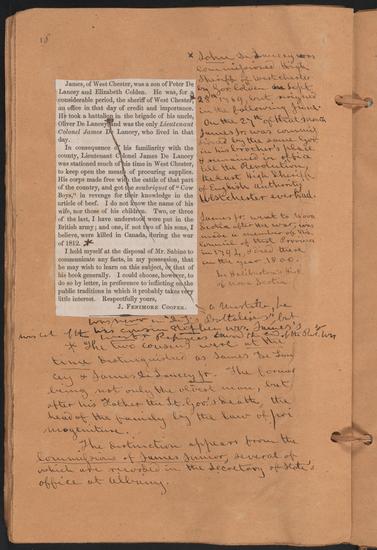 18
James, of West Chester, was a son of Peter De
Lancey and Elizabeth Colden. He was, for a
considerable period, the sheriff of West Chester,
an office in that day of credit and importance.
He took a battalion in the brigade of his uncle,
Oliver De Lancey, and was the only Lieutenant
Colonel James De Lancey, who lived in that
day.
In consequence of his familiarity with the
county, Lieutenant Colonel James De Lancey
was stationed much of his time in West Chester,
to keep open the means of procuring supplies.
His corps made free with the cattle of that part
of the country, and got the soubriquet of "Cow
Boys," in revenge for their knowledge in the
article of beef. I do not know the name of his
wife, nor those of his children. Two, or three
of the last, I have understood, were put in the
British army; and one, if not two of his sons, I
believe, were killed in Canada, during the war
of 1812.
I hold myself at the disposal of Mr. Sabine to
communicate any facts, in my possession, that
he may wish to learn on this subject, or that of
his book generally. I could choose, however, to
do so by letter, in preference to inflicting on the
public traditions in which it probably takes very
little interest. Respectfully yours,
J. Fenimore Cooper.
* John De Lancey was
commissioned High
Sheriff of Westchester
by Gov Colden on Sept
28th 1769, but resigned
in the following June.
On the 27th of that month
James Jr. was commis
sioned by the same Gov
in his brother's place
& remained in office
till the Revolution,
the last High Sheriff
of English authority
Westchester ever had.
James Jr. went to Nova
Scotia after the war, was
made a member of the
Council of that Province
in 1794, & died there
in the year 1800.
In Haliburton's Hist
of Nova Scotia.
a mistake, he
but
his cousin Stephen was. James's
* The two cousins went at the
time distinguished as James De Lan
cey & James De Lancey Jr. The former
being not only the oldest man, but
after his Father the Lt. Gov's death, the
head of the family by the law of pri
mogeniture.
The distinction appears from the
Commissions of James Junior, several of
which are recorded in the Secretary of State's
office at Albany.